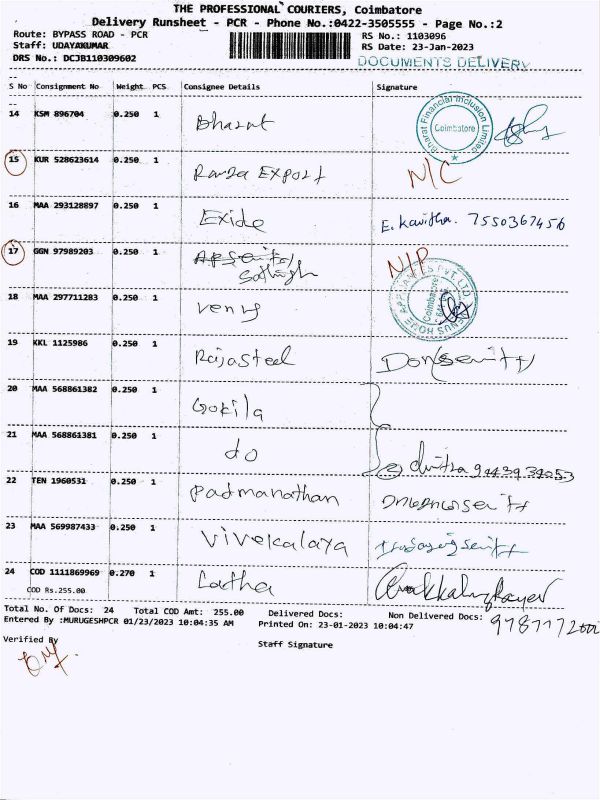 THE PROFESSIONAL COURIERS, Coimbatore
Delivery Runsheet - PCR - Phone No.:0422-3505555 - Page No.:2
Route: BYPASS ROAD - PCR
Staff: UDAYAKUMAR
DRS No.: DCJB110309602
RS No.: 1103096
RS Date: 23-Jan-2023
DOCUMENTS DELIVERY
S No Consignment No Weight PCS Consignee Details Signature
14 KSM 896704 0.250 1 Bharat
Bharat Financial Inclusion Limited
Coimbatore
15 KUR 528623614 0.250 1 Randa Export N/C
16 MAA 293128897 0.250 1 Exide E. Kavitha. 7550367456
17 GGN 97989203 0.250 1 N/P
Sathish
18 MAA 297711283 0.250 1 venus
VENUS HOME APPLIANCES PVT. LTD.
Coimbatore
19 KKL 1125986 0.250 1 Rajasteel
20 MAA 568861382 0.250 1 Gokila
21 MAA 568861381 0.250 1 do
22 TEN 1960531 0.250 1 Padmanathan
23 MAA 569987433 0.250 1 Vivekalaya
24 COD 1111869969 0.270 1 Latha
COD Rs.255.00
Total No. Of Docs: 24 Total COD Amt: 255.00 Delivered Docs: Non Delivered Docs:
Entered By :MURUGESHPCR 01/23/2023 10:04:35 AM Printed On: 23-01-2023 10:04:47
Verified By
Staff Signature